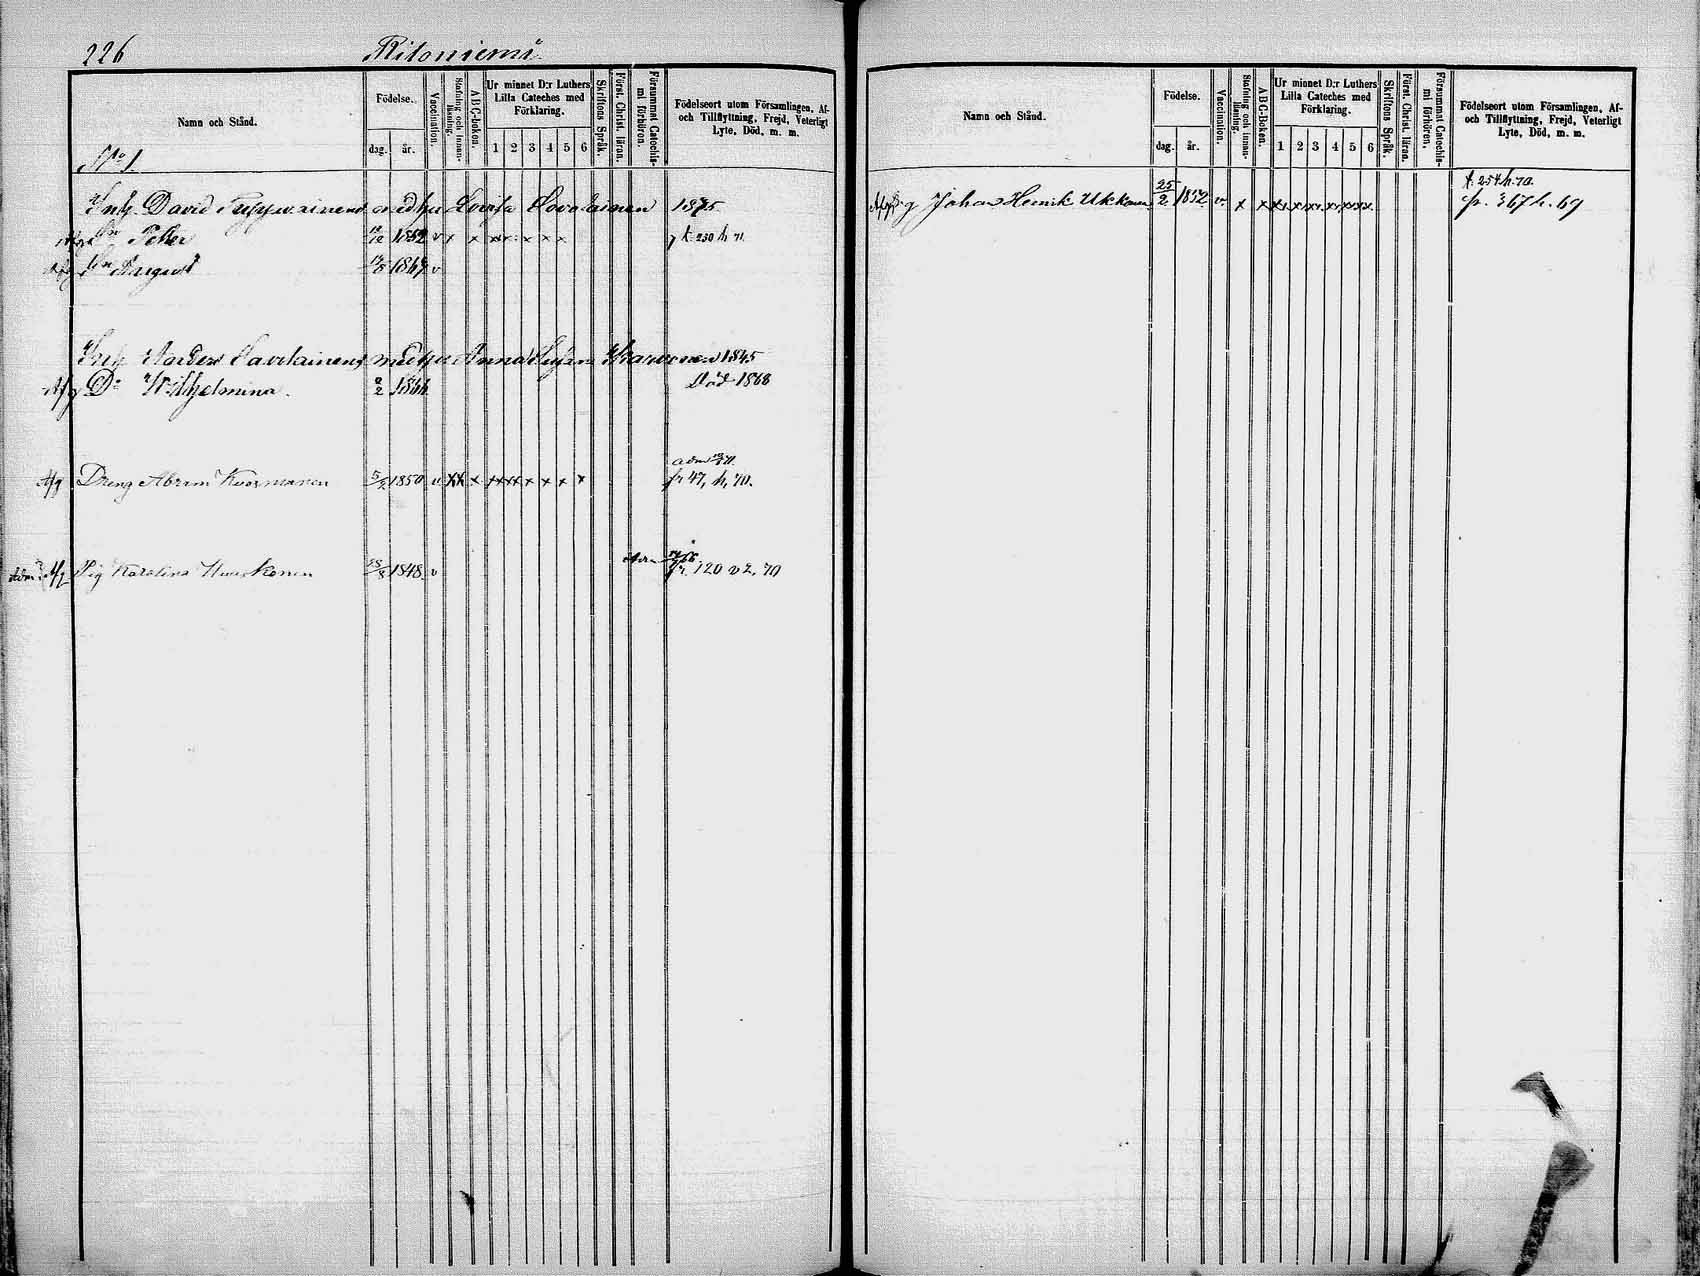 226 Ritoniemi
Namn och Stånd.
Födelse.
dag. år.
Vaccination.
Stafning och innan-läsning.
A B C-boken.
Ur minnet D:r Luthers Lilla Cateches med Förklaring.
1 2 3 4 5 6
Skriftens Språk.
Först. Christ. läran.
Försummat Catechis-mi förhören.
Födelseort utom Församlingen, Af-
och Tillflyttning, Frejd, Veterligt
Lyte, Död, m. m.
No 1.
Inh. David med hu Lovisa 1875
Sn Peter 1852 v x x x x x x t. 250 h 71.
Sn August 13/8 1867 v
Inh Anders Savolainens med hu Anna 1845
Afg Dr Wilhelmina. 2/2 1866 Död 1868
Afg Dreng Abram Kuosmanen 1850 v xx x xx xx x x x x fr 47, h, 70.
adm
Afg Pig Karolina Huuskonen 1848. v fr. 120 v 2, 70
Namn och Stånd.
Födelse.
dag. år.
Vaccination.
Stafning och innan-läsning.
A B C-boken.
Ur minnet D:r Luthers Lilla Cateches med Förklaring.
1 2 3 4 5 6
Skriftens Språk.
Först. Christ. läran.
Försummat Catechis-mi förhören.
Födelseort utom Församlingen, Af-
och Tillflyttning, Frejd, Veterligt
Lyte, Död, m. m.
t. 254 h. 70.
Johan Henrik Ukkonen 25/2 1852 v. x x xx xx xx xx xx xx fr. 367 h. 69